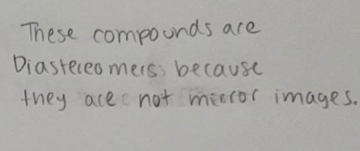 These compounds are
Diastereomers because
they are not mirror images.